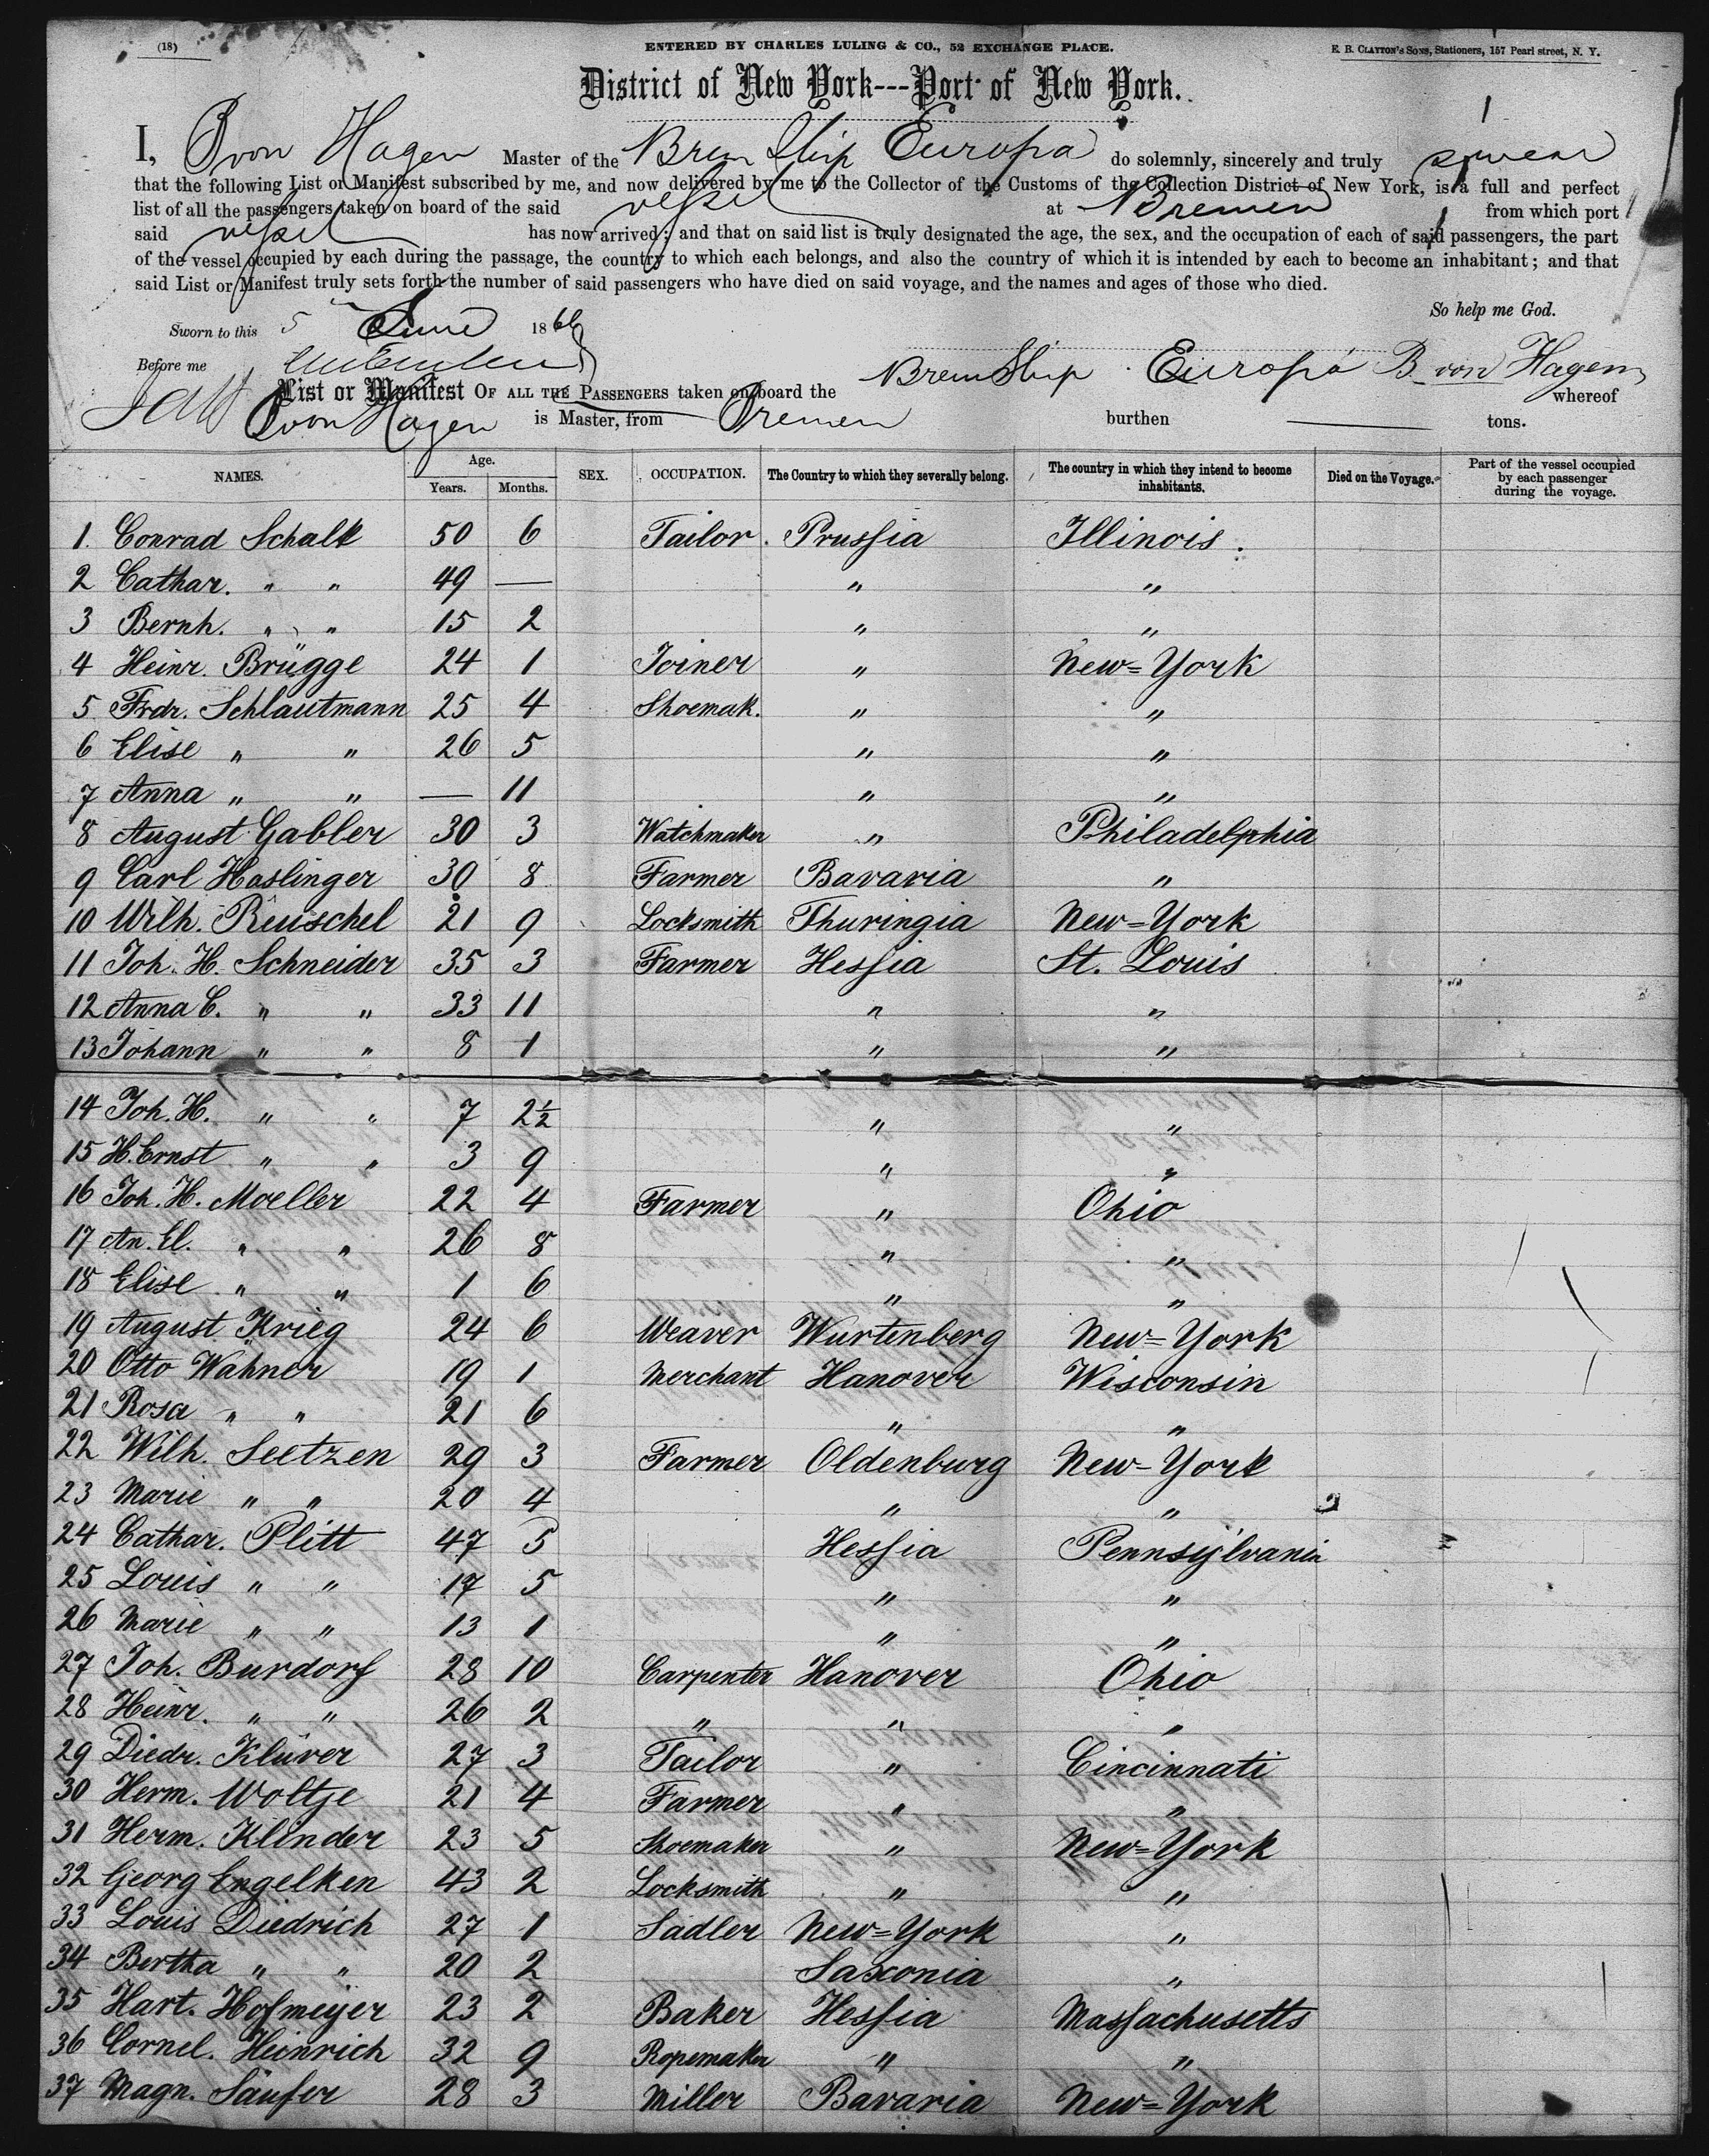 (18)
ENTERED BY CHARLES LULING & CO., 52 EXCHANGE PLACE.
E. B. CLAYTON'S SONS, Stationers, 157 Pearl street, N. Y.
District of New York---Port of New York.
I, B von Hagen Master of the Brem Ship Europa do solemnly, sincerely and truly swear
that the following List or Manifest subscribed by me, and now delivered by me to the Collector of the Customs of the Collection District of New York, is a full and perfect
list of all the passengers taken on board of the said vessel at Bremen from which port
said vessel has now arrived; and that on said list is truly designated the age, the sex, and the occupation of each of said passengers, the part
of the vessel occupied by each during the passage, the country to which each belongs, and also the country of which it is intended by each to become an inhabitant; and that
said List or Manifest truly sets forth the number of said passengers who have died on said voyage, and the names and ages of those who died.
So help me God.
Sworn to this 5 June 1866
Before me
B von Hagen
List or Manifest OF ALL THE PASSENGERS taken on board the Brem Ship Europa whereof
B von Hagen is Master, from Bremen burthen — tons.
NAMES. Age. Years. Months. SEX. OCCUPATION. The Country to which they severally belong. The country in which they intend to become inhabitants. Died on the Voyage. Part of the vessel occupied by each passenger during the voyage.
1. Conrad Schalk 50 6 Tailor. Prussia Illinois.
2 Cathar. " " 49 — " "
3 Bernh. " " 15 2 " "
4 Heinr. Brügge 24 1 Joiner " New=York
5 Frdr. Schlautmann 25 4 Shoemak. " "
6 Elise " " 26 5 " "
7 Anna " " — 11 " "
8 August Gabler 30 3 Watchmaker " Philadelphia
9 Carl Haslinger 30 8 Farmer Bavaria "
10 Wilh. Reuschel 21 9 Locksmith Thuringia New=York
11 Joh. H. Schneider 35 3 Farmer Hessia St. Louis
12 Anna C. " " 33 11 " "
13 Johann " " 8 1 " "
14 Joh. H. " " 7 2½ " "
15 H. Ernst " " 3 9 " "
16 Joh. H. Moeller 22 4 Farmer " Ohio
17 An. El. " " 26 8 " "
18 Elise " " 1 6 " "
19 August Krieg 24 6 Weaver Wurtenberg New=York
20 Otto Wahner 19 1 Merchant Hanover Wisconsin
21 Rosa " " 21 6 " "
22 Wilh. Seetzen 29 3 Farmer Oldenburg New-York
23 Marie " " 20 4 " "
24 Cathar. Plitt 47 5 Hessia Pennsylvania
25 Louis " " 17 5 " "
26 Marie " " 13 1 " "
27 Joh. Burdorf 28 10 Carpenter Hanover Ohio
28 Heinr. " " 26 2 " " "
29 Diedr. Klüver 27 3 Tailor " Cincinnati
30 Herm. Woltje 21 4 Farmer " "
31 Herm. Klinder 23 5 Shoemaker " New=York
32 Georg Engelken 43 2 Locksmith " "
33 Louis Diedrich 27 1 Sadler New=York "
34 Bertha " " 20 2 Saxonia "
35 Hart. Hofmeijer 23 2 Baker Hessia Massachusetts
36 Cornel. Heinrich 32 9 Ropemaker " "
37 Magn. Säufer 28 3 Miller Bavaria New=York